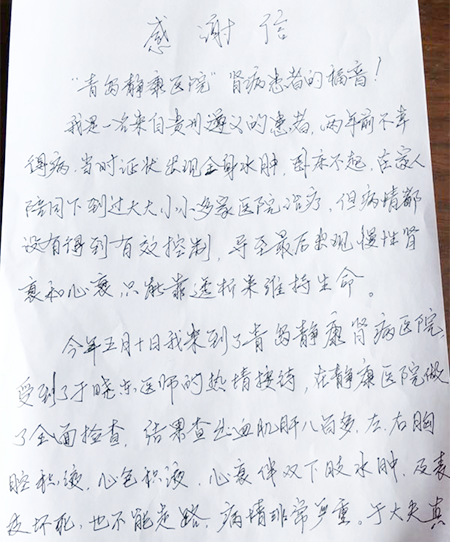 感谢信
“青岛静康医院”肾病患者的福音!
我是一名来自贵州遵义的患者,两年前不幸
得病,当时症状出现全身水肿,卧床不起,在家人
陪同下到过大大小小多家医院治疗,但病情都
没有得到有效控制,导至最后出现慢性肾
衰和心衰,只能靠透析来维持生命。
今年五月十日我来到了青岛静康肾病医院,
受到了于晓东医师的热情接待,在静康医院做
了全面检查,结果查出血肌肝八百多,左、右胸
腔积液,心包积液,心衰伴双下肢水肿,及表
皮坏死,也不能走路,病情非常严重。于大夫真